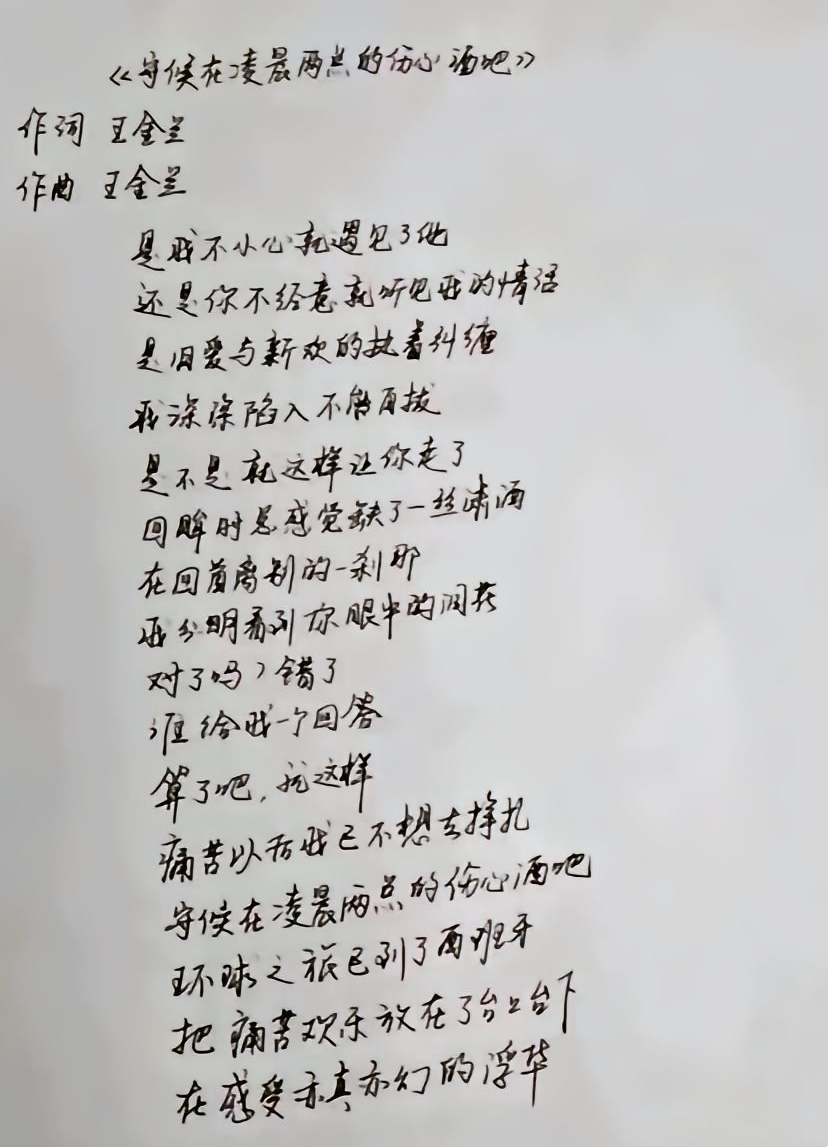 《守候在凌晨两点的伤心酒吧》
作词 王金兰
作曲 王金兰
是我不小心就遇见了他
还是你不经意就听见我的情话
是旧爱与新欢的执着纠缠
我深深陷入不能自拔
是不是就这样让你走了
回眸时总感觉缺了一丝潇洒
在回首离别的一刹那
我分明看到你眼中的泪花
对了吗？错了
谁给我一个回答
算了吧，就这样
痛苦以后我已不想去挣扎
守候在凌晨两点的伤心酒吧
环球之旅已到了西班牙
把痛苦欢乐放在了台上台下
在感受亦真亦幻的浮华